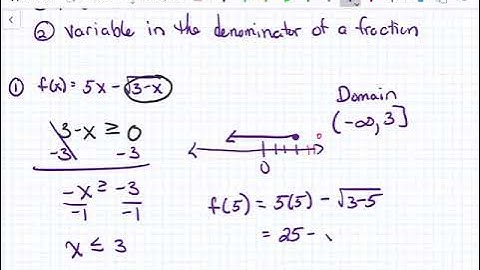 ② variable in the denominator of a fraction
① f(x) = 5x - √3-x
3-x ≥ 0
-3 -3
-x ≥ -3
-1 -1
x ≤ 3
0
Domain
(-∞, 3]
f(5) = 5(5) - √3-5
= 25 -